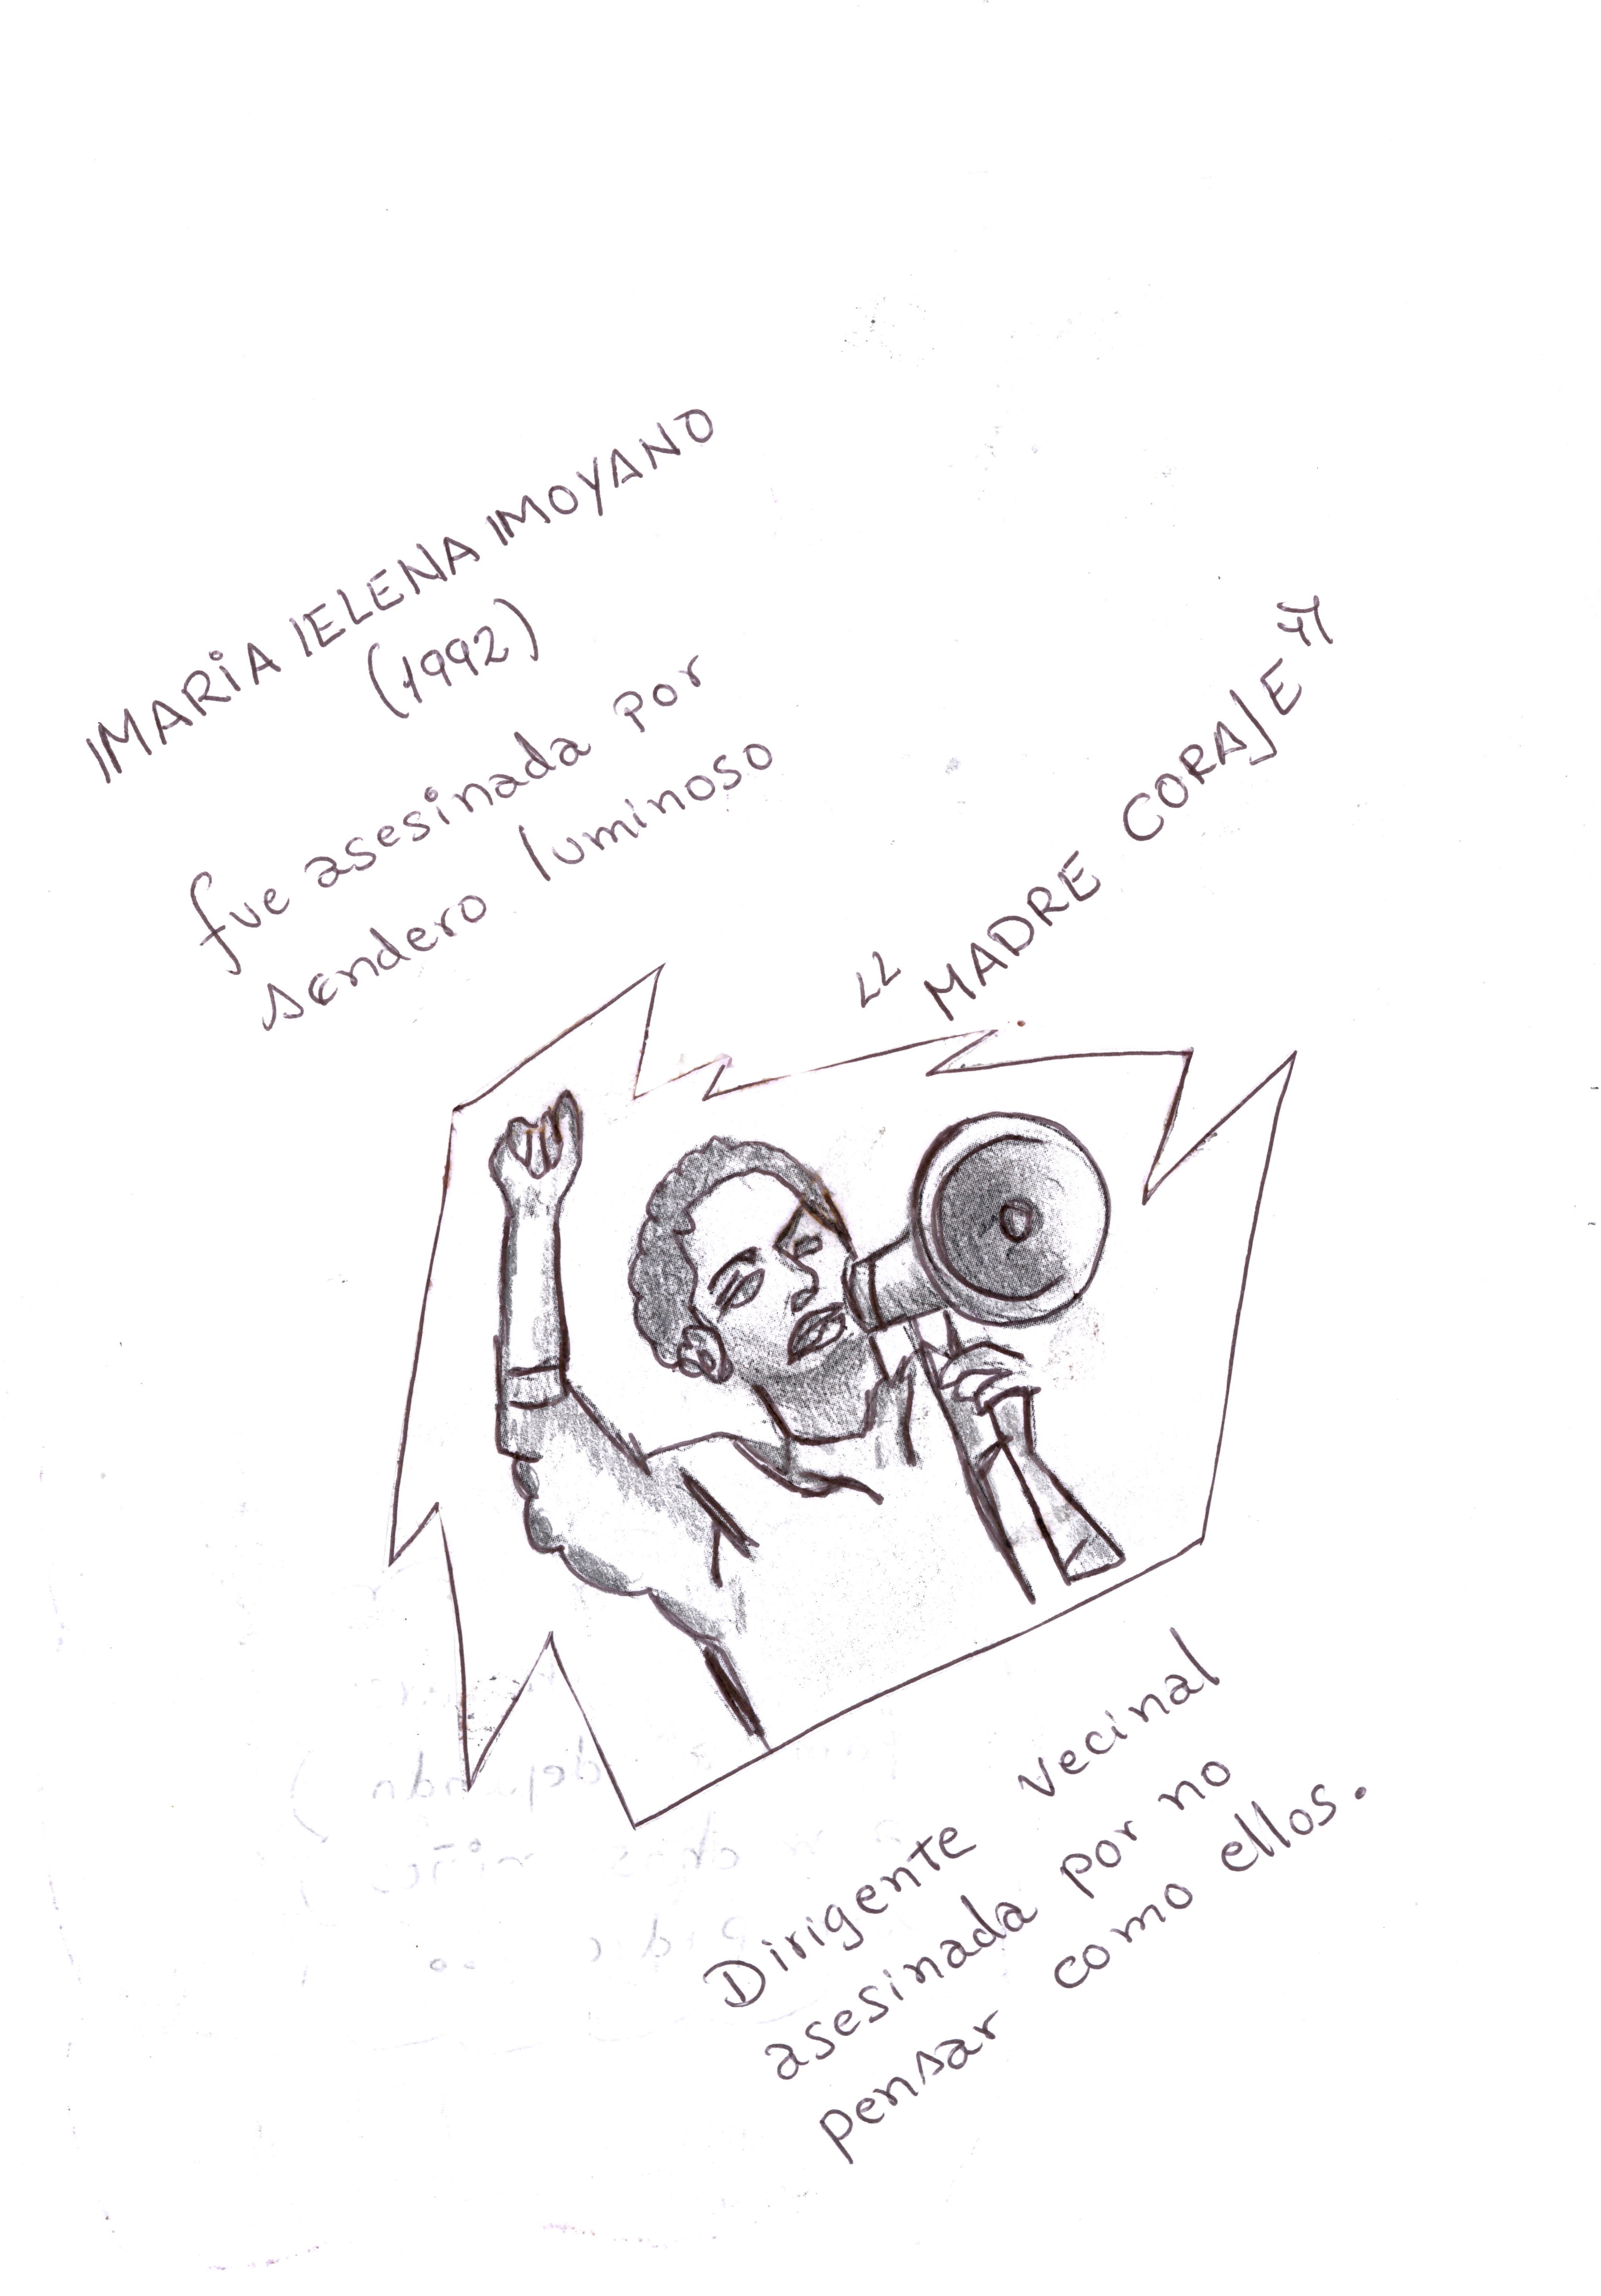 MARIA ELENA MOYANO
(1992)
fue asesinada por
sendero luminoso
"MADRE CORAJE"
Dirigente vecinal
asesinada por no
pensar como ellos.